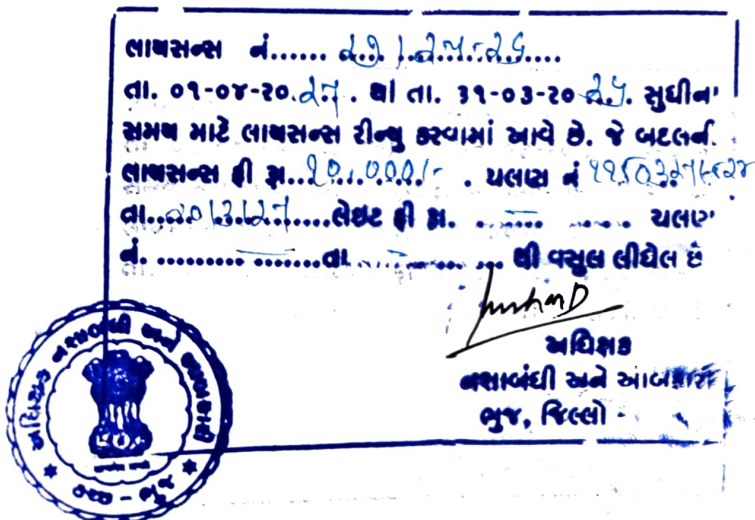 લાયસન્સ નં...... 
તા. ૦૧-૦૪-૨૦.૨૫. થી તા. ૩૧-૦૩-૨૦ સુધીના
સમય માટે લાયસન્સ રીન્યુ કરવામાં આવે છે. જે બદલની
લાયસન્સ ફી રૂા...૨૦,૦૦૦/- . ચલણ નં
તા. લેઇટ ફી રૂા. ... — ... ચલણ
નં. ......... — ......તા. — ... થી વસુલ લીધેલ છે
અધિક્ષક
નશાબંધી અને આબકારી
ભુજ, જિલ્લો -
અધિક્ષક નશાબંધી અને આબકારી
કચ્છ - ભુજ